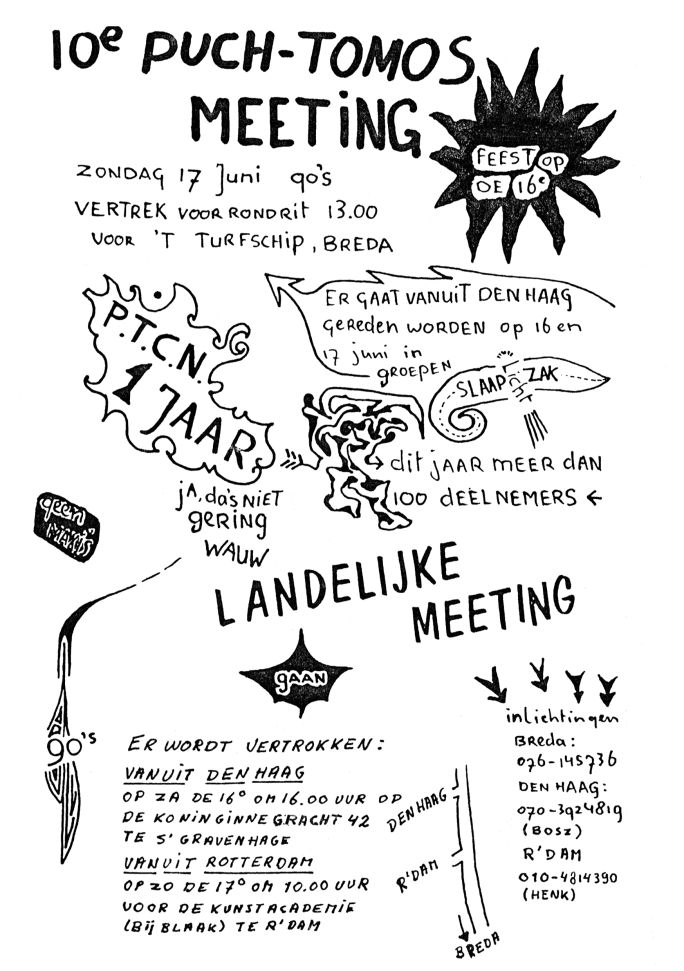 10e PUCH-TOMOS
MEETING
FEEST OP
DE 16e
ZONDAG 17 Juni 90's
VERTREK VOOR RONDRIT 13.00
VOOR 'T TURFSCHIP, BREDA
P.T.C.N.
1 JAAR
ER GAAT VANUIT DEN HAAG
GEREDEN WORDEN OP 16 en
17 juni in
GROEPEN
SLAAP ZAK
dit JAAR MEER DAN
100 DEELNEMERS
jA, da's NIET
GERING
WAUW
geen
LANDELIJKE
MEETING
GAAN
90's
inlichtingen
BREDA:
076-145736
DEN HAAG:
070-3924819
(BOSZ)
R'DAM
010-4814390
(HENK)
ER WORDT VERTROKKEN:
VANUIT DEN HAAG
OP ZA DE 16e OM 16.00 UUR OP
DE KONINGINNEGRACHT 42
TE S'GRAVENHAGE
VANUIT ROTTERDAM
OP ZO DE 17e OM 10.00 UUR
VOOR DE KUNSTACADEMIE
(Bij BLAAK) TE R'DAM
DEN HAAG
R'DAM
BREDA